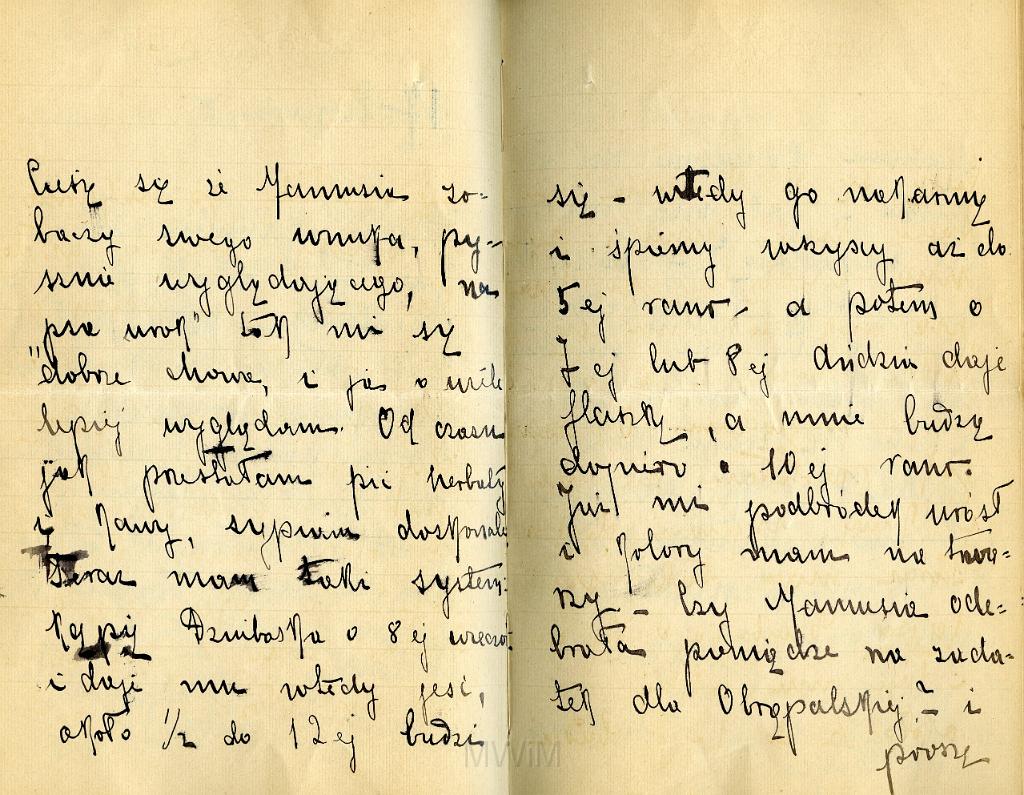 Cieszę się że Mamusia zo-
baczy swego wnuka, py-
sznie wyglądającego, na
psa urok" tak mi się
"dobrze chowa, i ja o wiele
lepiej wyglądam. Od czasu
jak przestałam pić herbaty
i kawy, sypiam doskonale
Teraz mam taki system:
Kąpię Dziubaska o 8ej wieczór
i daję mu wtedy jeść,
około 1/2 do 12ej budzi
się - wtedy go nakarmię
i śpiemy wszyscy aż do
5ej rano - a potem o
7ej lub 8ej dziadzia daje
flaszkę, a mnie budzą
dopiero o 10ej rano.
Już mi podbródek urósł
i kolory mam na twa-
rzy - Czy Mamusia ode-
brała pieniądze na zada-
tek dla Obrąpalskiej? - i
proszę
MWiM